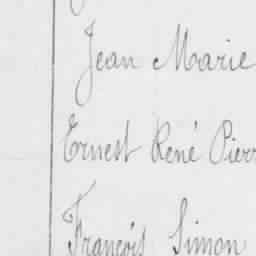 Jean Marie
Ernest René Pierr
François Simon